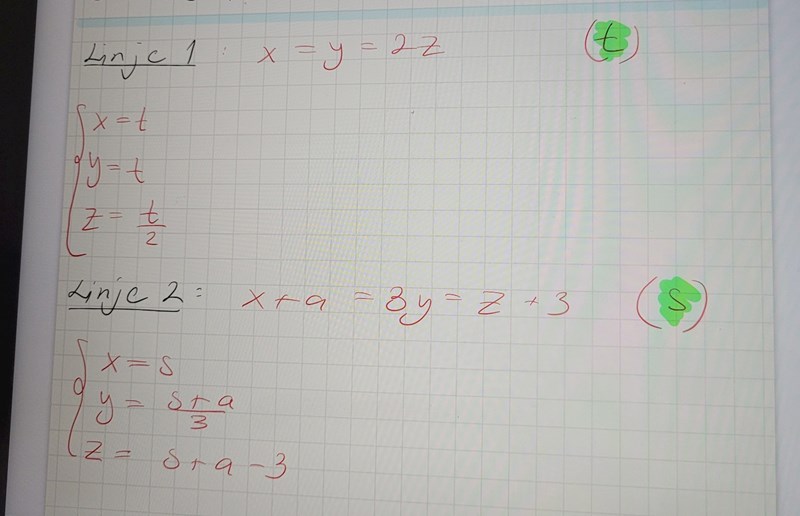 Linje 1 : x = y = 2z (t)
x = t
y = t
z = t/2
Linje 2 : x + a = 3y = z + 3 (s)
x = s
y = s + a / 3
z = s + a - 3